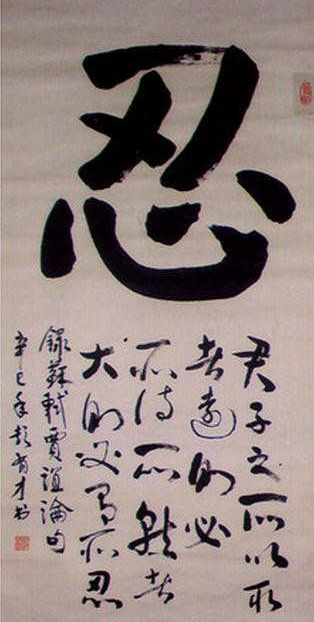 忍
君子之所以取
者遠則必
所待所就者
大則必有所忍
錄蘇軾賈誼論句
辛巳年彭才书